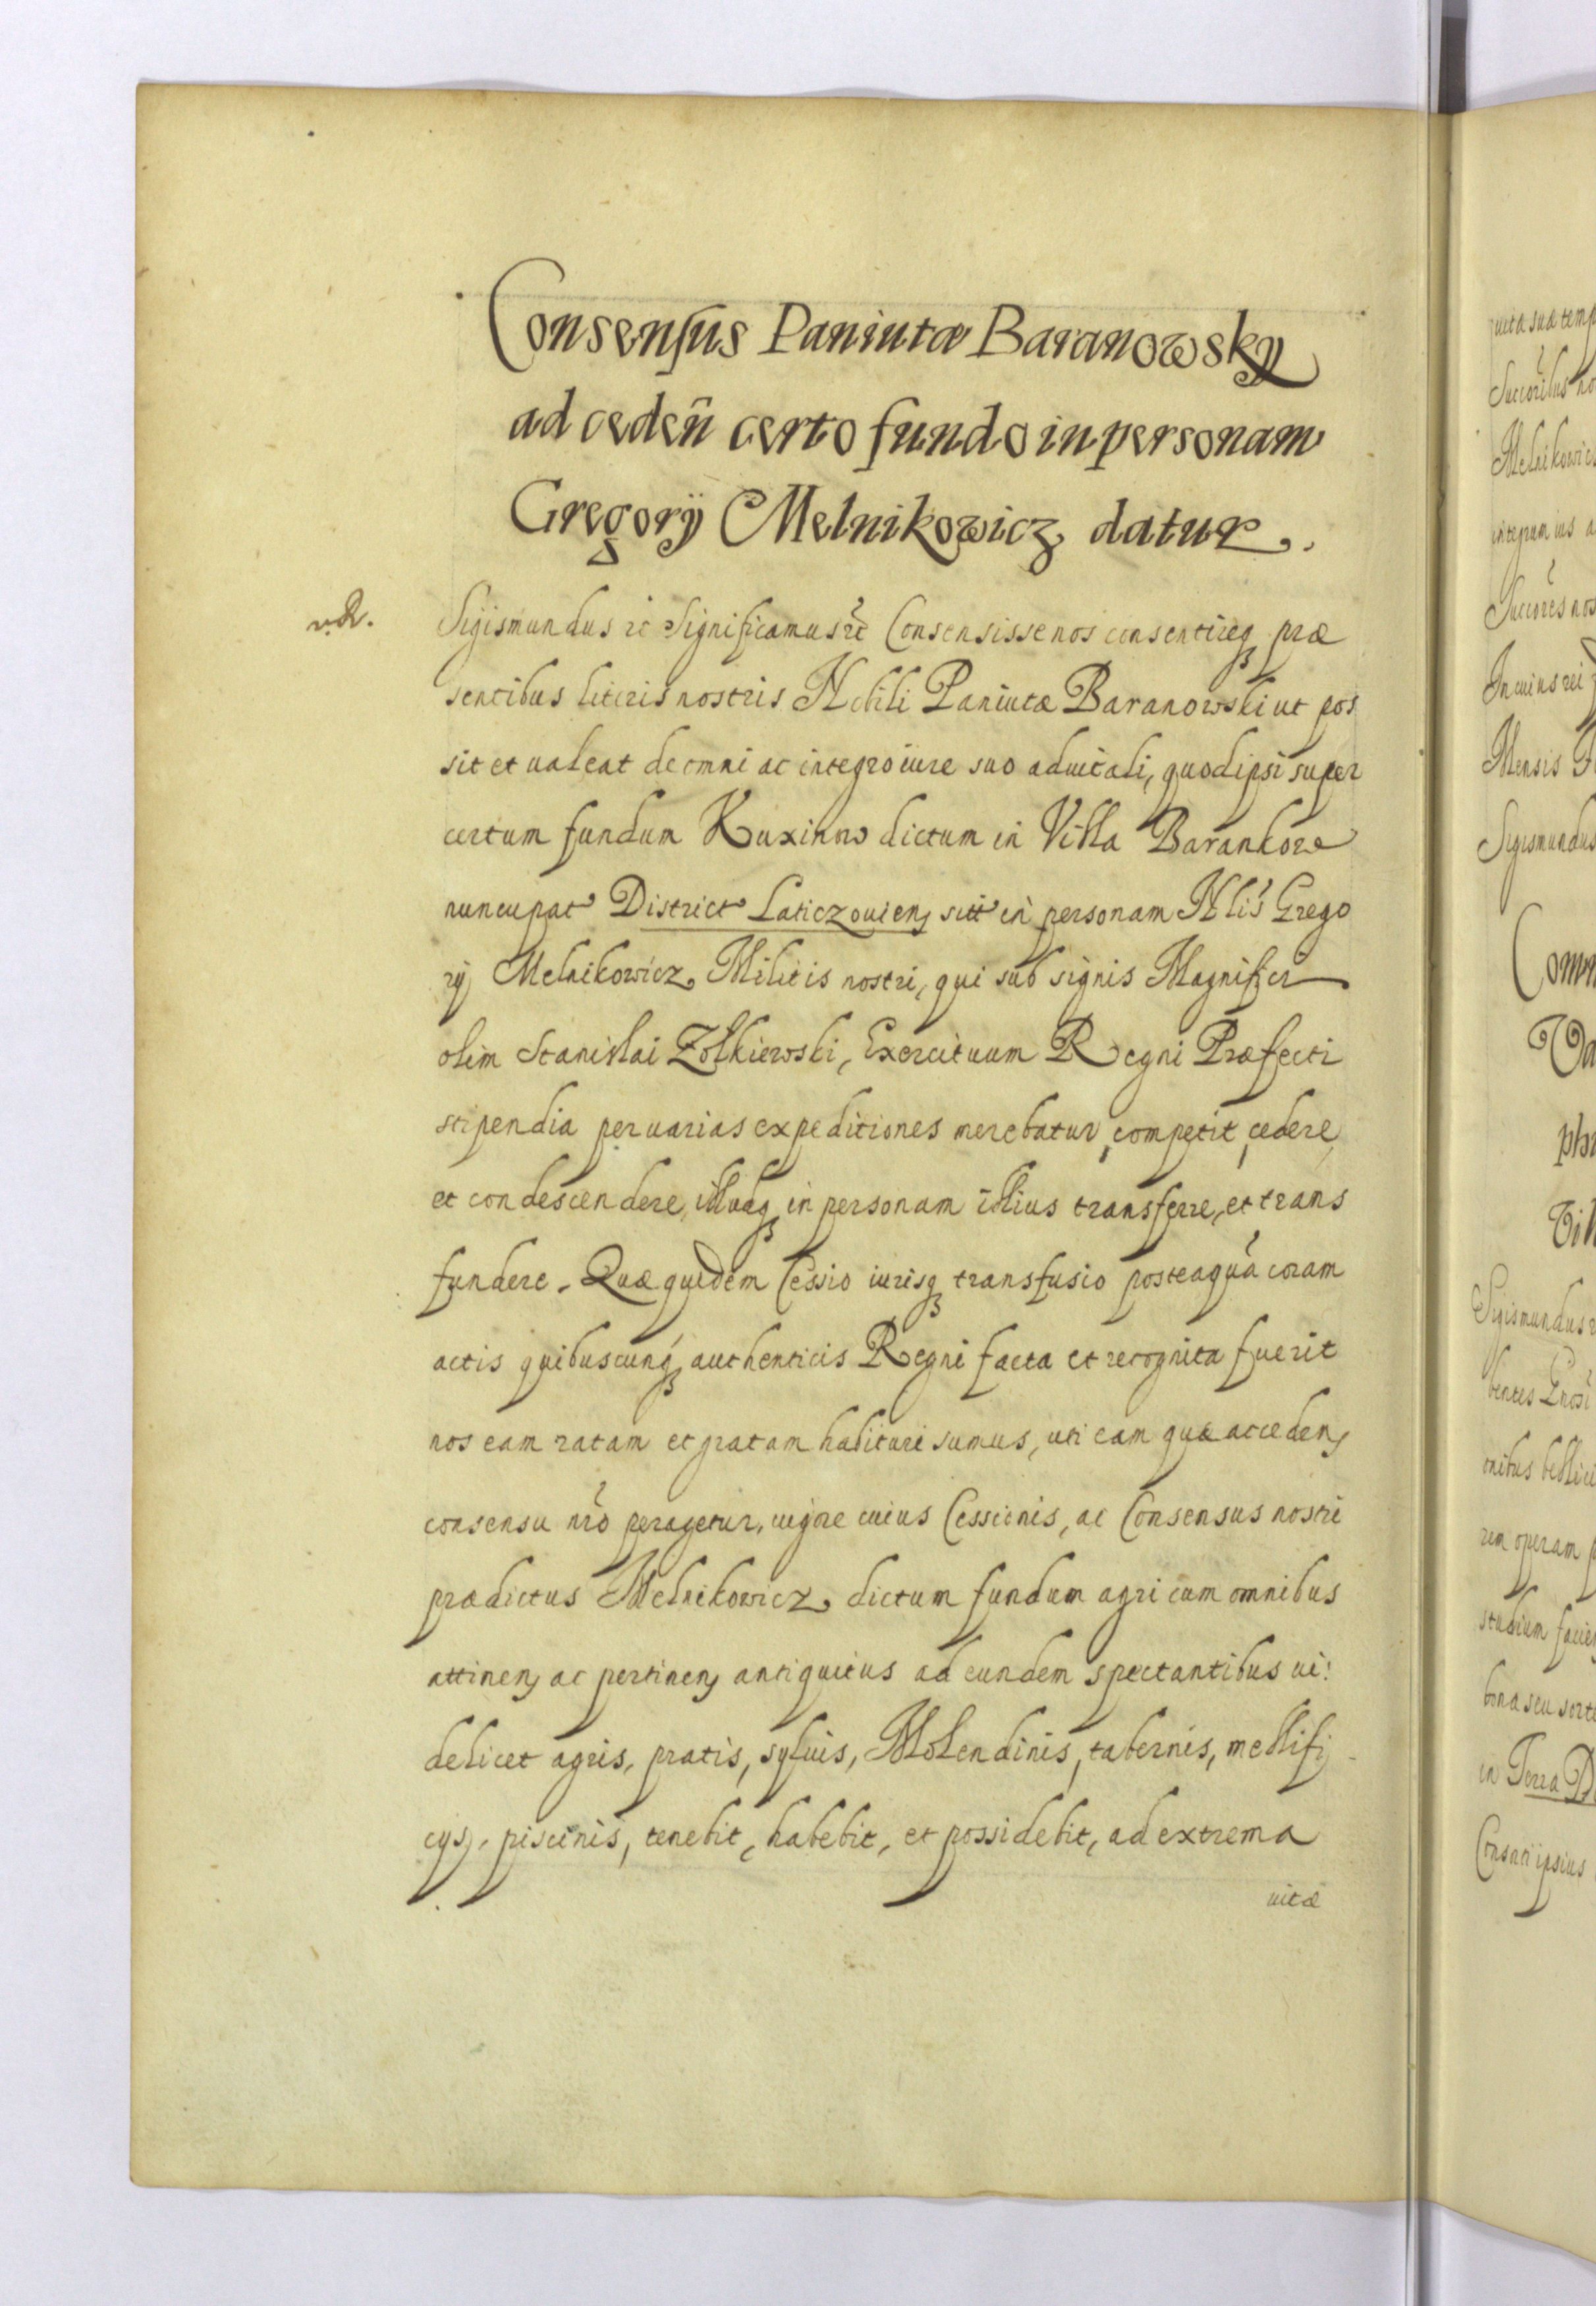 Consensus Paniutæ Baranowsky
ad ceden̄ certo fundo in personam
Gregorÿ Melnikowicz datur.
Sigismundus etc Significamus etc Consensisse nos consentireq præ
sentibus literis nostris Nobili Paniutæ Baranowski ut pos
sit et ualeat de omni ac integro iure suo aduitali, quod ipsi super
certum fundum Kuxinno dictum in Villa Barankowe
nuncupat District Laticzouien sitt in personam Nlis Grego
rÿ Melnikowicz Militis nostri, qui sub signis Magnifici
olim Stanislai Zołkiewski, Exercituum Regni Præfecti
stipendia per uarias expeditiones merebatur, competit, cedere,
et condescendere, illudq in personam illius transferre, et trans
fundere. Quæ quidem Cessio iurisq transfusio posteaquã coram
actis quibuscunq authenticis Regni facta et recognita fuerit
nos eam ratam et gratam habituri sumus, uti eam quæ acceden
consensu nrõ peragetur, uigore cuius Cessionis, ac Consensus nostri
prædictus Melnikowicz dictum fundum agri cum omnibus
attinen ac pertinen antiquitus ad eundem spectantibus ui:
delicet agris, pratis, syluis, Molendinis, tabernis, mellifi
cys, piscinis, tenebit, habebit, et possidebit, ad extrema
uitæ
uitæ suæ temp
Succoribus no
Melnikowicz
integrum ius a
Succores nos
In cuius rei
Mensis
Sigismundus
Com
Sigismundus
onibus bellici
rem operam
studium
bona seu sort
in Terra D
ipsius